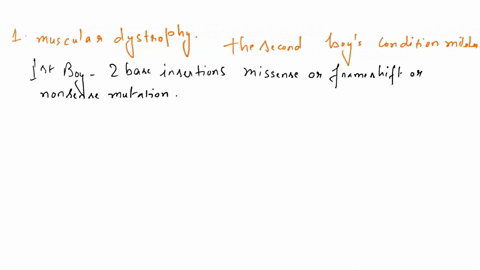 1. muscular dystrophy. the second boy's condition milder
1st Boy - 2 base insertions missense or frameshift or
nonsense mutation.